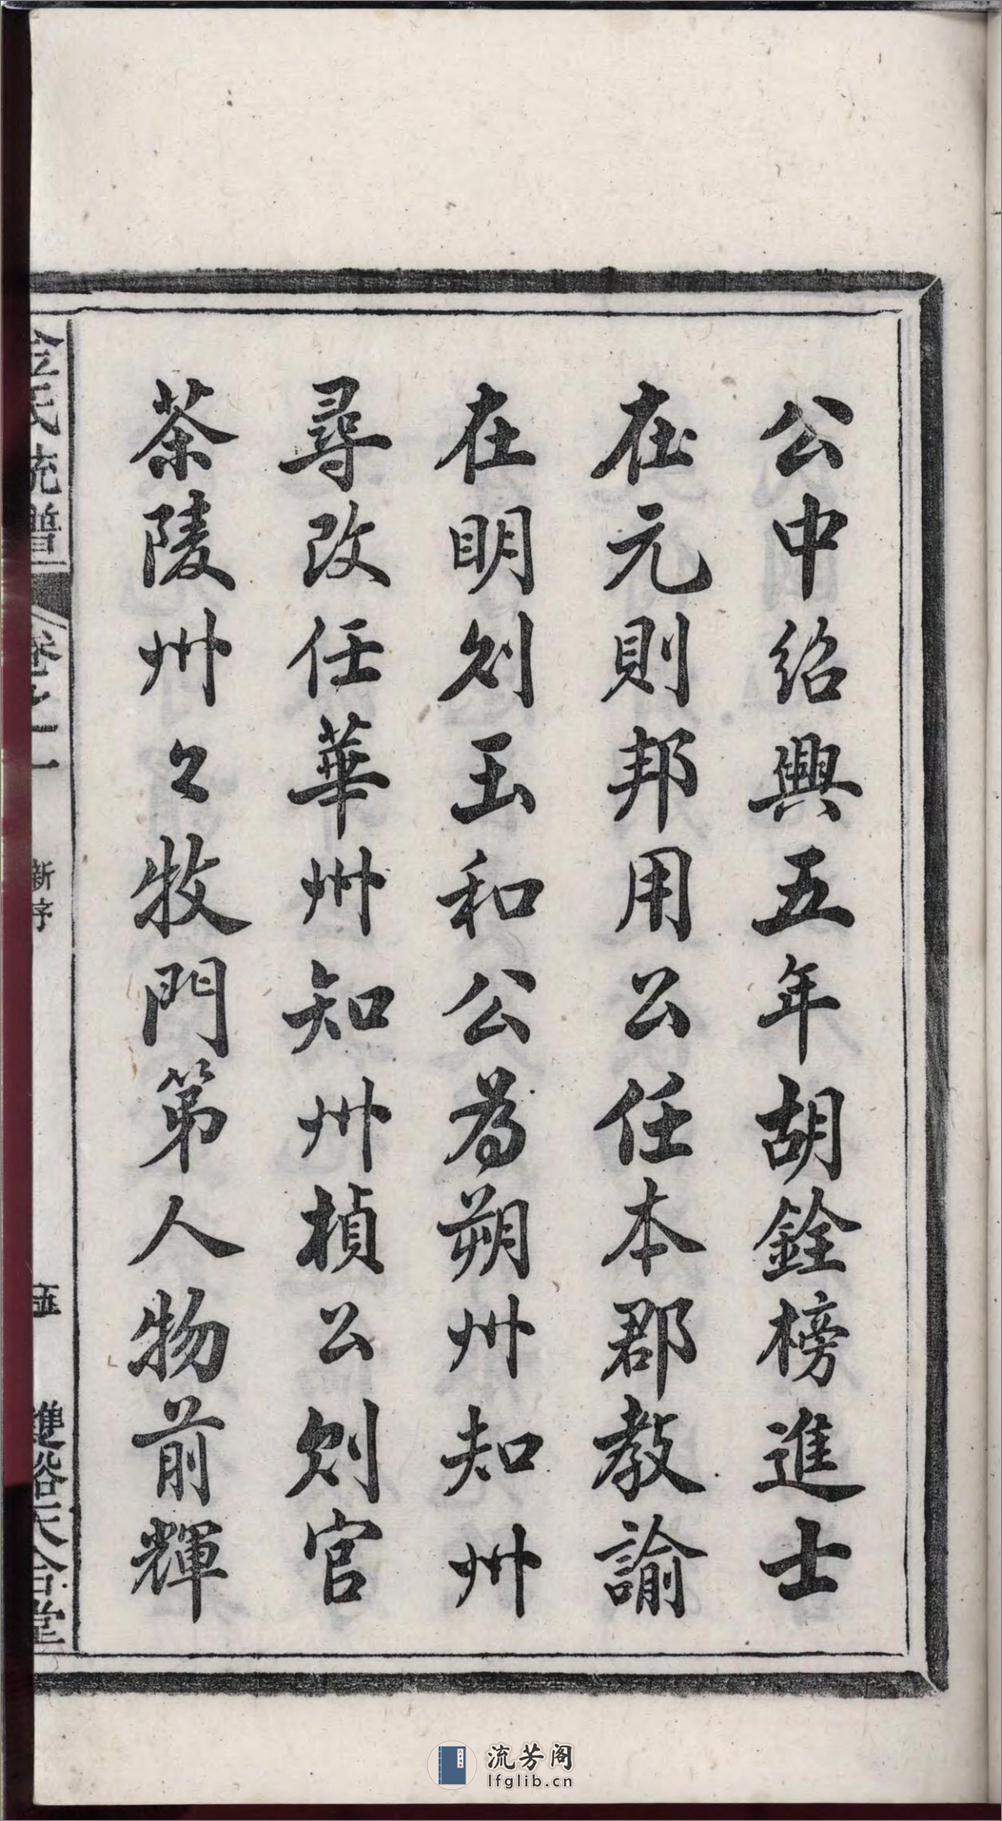 公中紹興五年胡銓榜進士
在元則邦用公任本郡教諭
在明則玉和公為朔州知州
尋改任華州知州楨公則官
茶陵州々牧門第人物前輝
金氏統譜
卷之一
新序
五
進裕天合堂
流芳阁
lfglib.cn